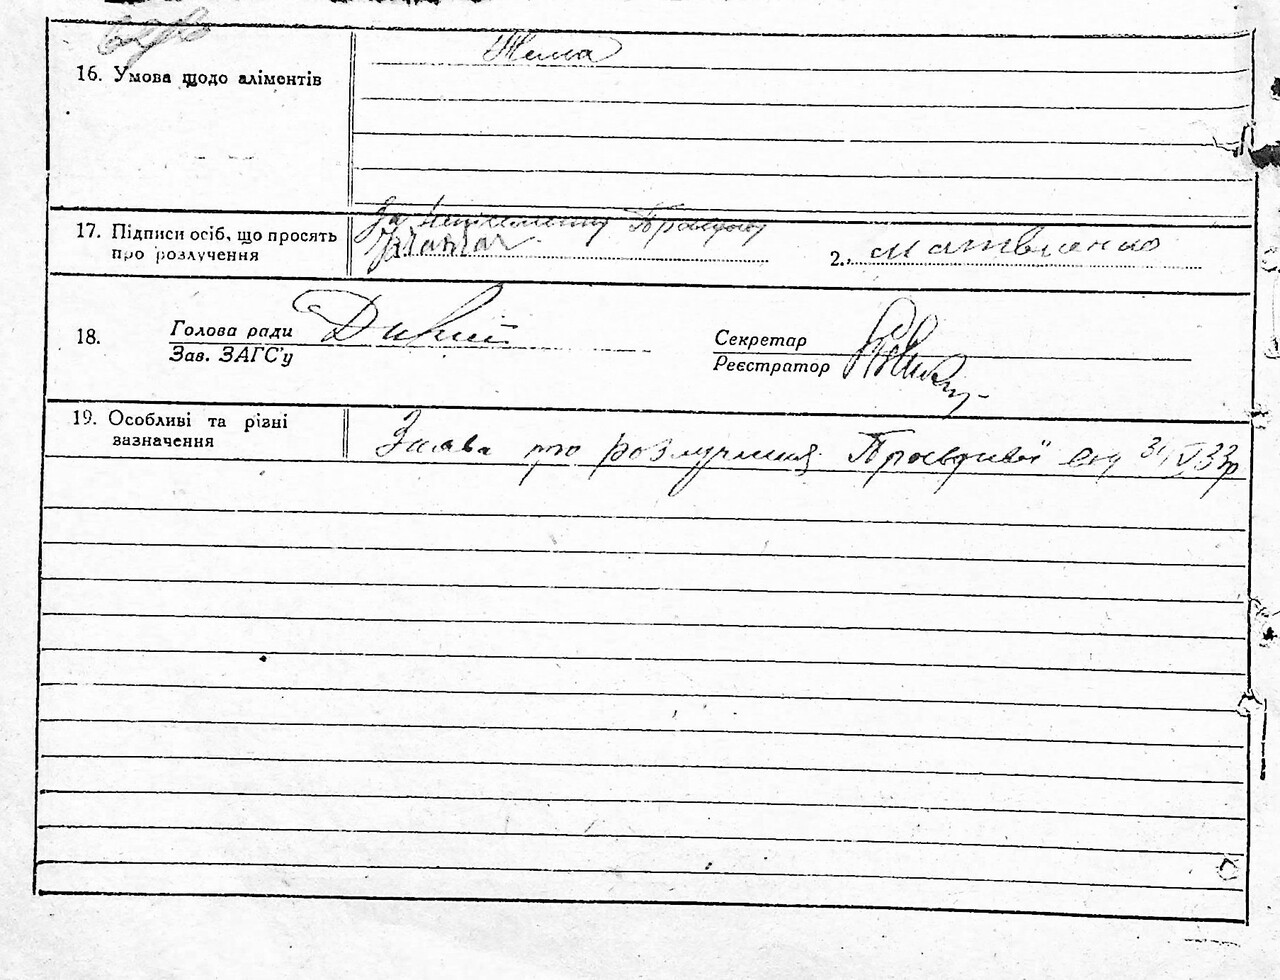 16. Умова щодо аліментів
Нема
17. Підписи осіб, що просять
про розлучення
За
2. Матвієнко
18.
Голова ради
Зав. ЗАГС'у
Секретар
Реєстратор
19. Особливі та різні
зазначення
Заява про розлучення від 31/V 33р